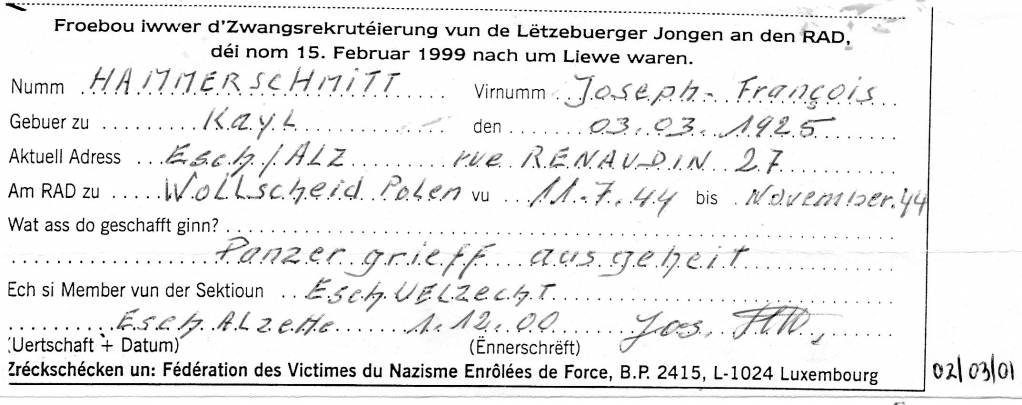 Froebou iwwer d'Zwangsrekrutéierung vun de Lëtzebuerger Jongen an den RAD,
déi nom 15. Februar 1999 nach um Liewe waren.
Numm HAMMERSCHMITT Virnumm Joseph-François
Gebuer zu Kayl den 03.03.1925
Aktuell Adress Esch/ALZ rue RENAUDIN 27
Am RAD zu Wollscheid Polen vu 11.7.44 bis November.44
Wat ass do geschafft ginn?
Panzer grieff ausgeheit
Ech si Member vun der Sektioun Esch UELZECHT
Esch ALzette 1.12.00 Jos.
(Uertschaft + Datum) (Ënnerschrëft)
Zréckschécken un: Fédération des Victimes du Nazisme Enrôlées de Force, B.P. 2415, L-1024 Luxembourg
02/03/01